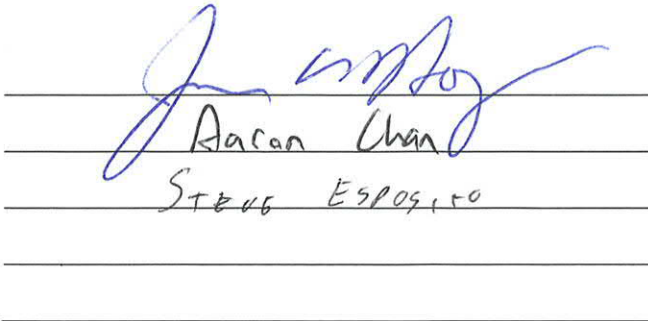 Aaron Chan
STEVE ESPOSITO